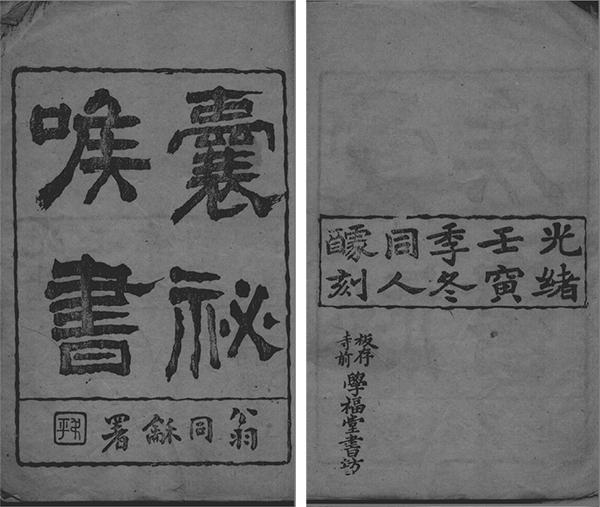 囊祕
喉書
翁同龢署
光緒
壬寅
季冬
同人
醵刻
板存
寺前
學福堂書坊